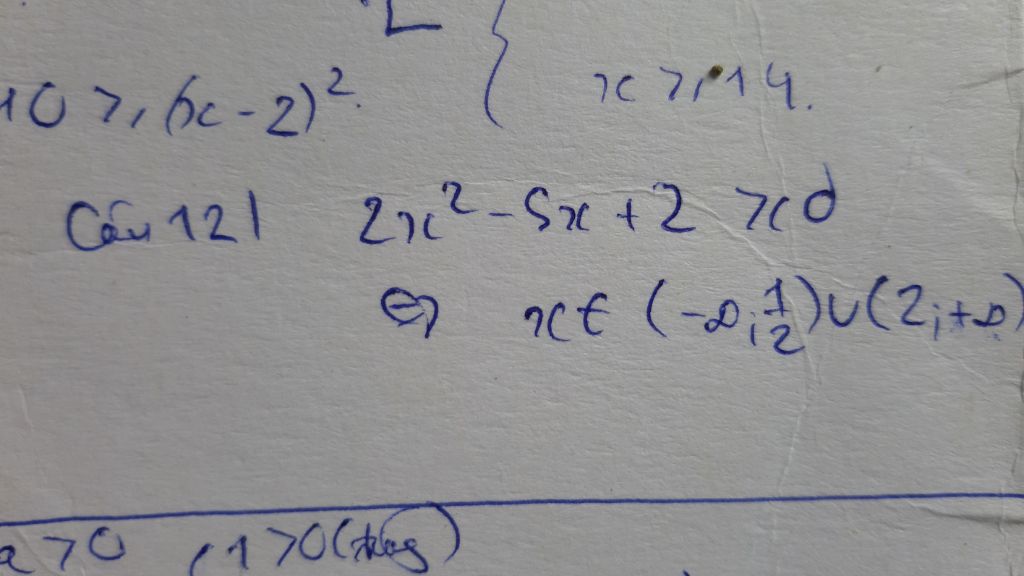 10 ≥ (x - 2)². { x ≥ 14.
Câu 12) 2x² - 5x + 2 > 0
⇔ x ∈ (-∞; 1/2) ∪ (2; +∞)
a > 0 , 1 > 0 (